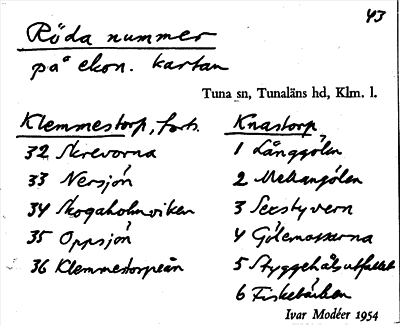 43
Röda nummer
på ekon. kartan
Tuna sn, Tunaläns hd, Klm. l.
Klemmestorp, forts.
32 Skrevorna
33 Nersjön
34 Skogaholmsviken
35 Oppsjön
36 Klemmestorpeån
Knastorp
1 Långgölen
2 Mellangölen
3
4 Gölemossarna
5 Styggehålsutfallet
6 Fiskebäcken
Ivar Modéer 1954